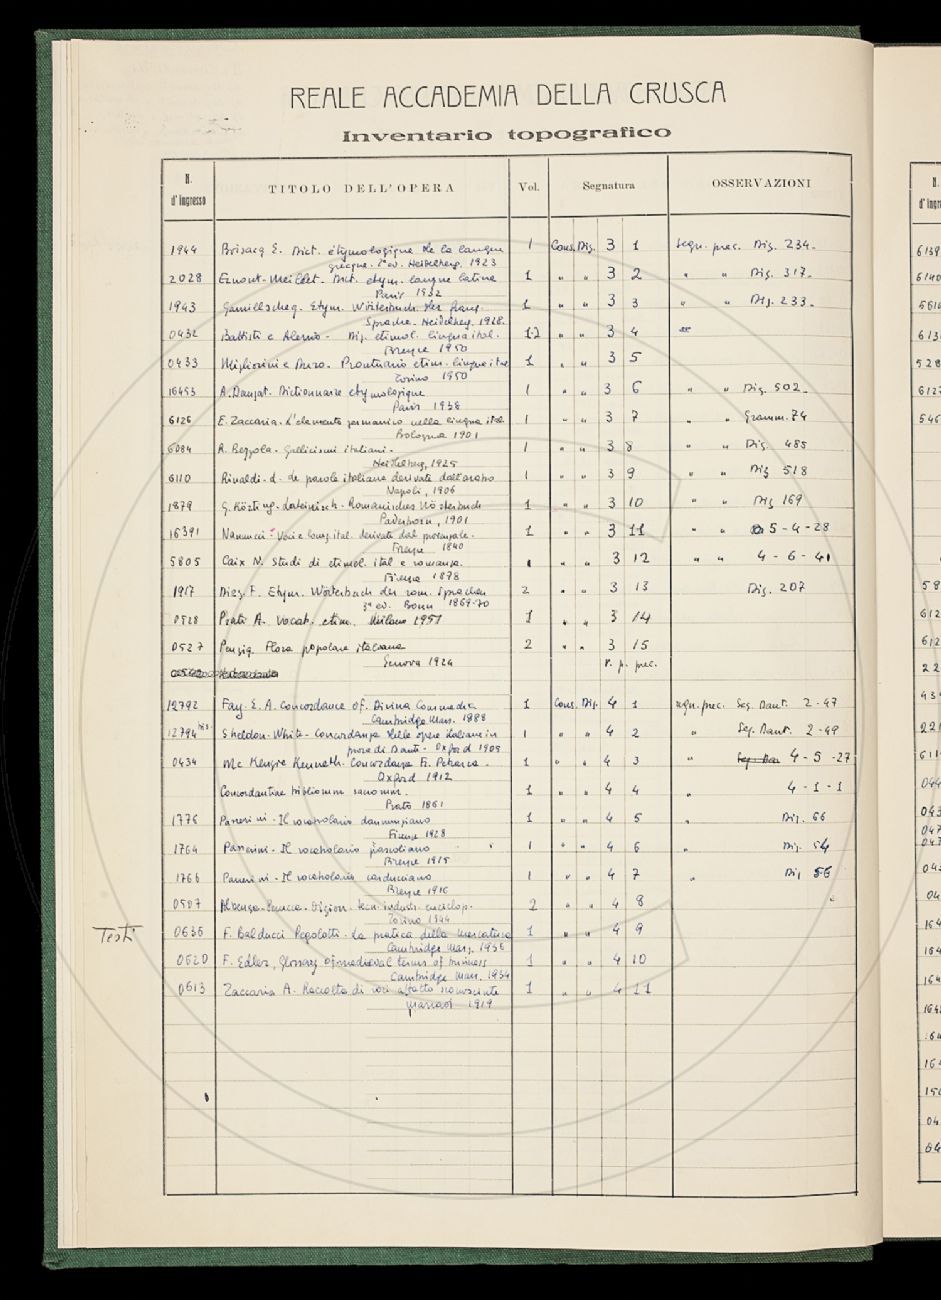 REALE ACCADEMIA DELLA CRUSCA
Inventario topografico
N. d'ingresso TITOLO DELL'OPERA Vol. Segnatura OSSERVAZIONI
1944 Boisacq E. Dict. étymologique de la langue 1 Cons. Diz. 3 1 segn. prec. Diz. 234.
grecque. 2ª ed. Heidelberg. 1923
2028 Ernout-Meillet. Dict. etym. langue latine 1 " " 3 2 " " Diz. 317.
Paris 1932
1943 Gamillscheg. Etym. Wörterbuch der franz. 1 " " 3 3 " " Diz. 233.
Sprache. Heidelberg. 1928.
0432 Battisti e Alessio - Diz. etimol. lingua ital. 1-2 " " 3 4 "
Firenze 1950
0433 Migliorini e Duro. Prontuario etim. lingua ital. 1 " " 3 5
Torino 1950
16453 A. Dauzat. Dictionnaire etymologique 1 " " 3 6 " " Diz. 502.
Paris 1938
6126 E. Zaccaria. L'elemento germanico nella lingua ital. 1 " " 3 7 " " Gramm. 74
Bologna 1901
6084 R. Bezzola. Gallicismi italiani. 1 " " 3 8 " " Diz. 485
Heidelberg, 1925
6110 Rinaldi. d. Le parole italiane derivate dall'arabo 1 " " 3 9 " " Diz 518
Napoli, 1906
1879 G. Körting. Lateinisch-Romanisches Wörterbuch 1 " " 3 10 " " Diz 169
Paderborn, 1901
16391 Nannucci - Voci e locuz. ital. derivate dal provenzale. 1 " " 3 11 " " 5-4-28
Firenze 1840
5805 Caix N. Studi di etimol. ital e romanza. 1 3 12 " " 4-6-41
Firenze 1878
1917 Diez F. Etym. Wörterbuch der rom. Sprachen 2 " " 3 13 Diz. 207
3ª ed. Bonn 1869-70
0528 Prati A. Vocab. etim. Milano 1951 1 " " 3 14
0527 Penzig. Flora popolare italiana 2 " " 3 15
Genova 1924 v. p. prec.
12792 Fay. E. A. Concordance of. Divina Commedia 1 Cons. Diz. 4 1 segn. prec. Seg. Dant. 2-47
Cambridge Mass. 1888
12794 bis. Sheldon-White - Concordanza delle opere italiane in 1 " " 4 2 " Seg. Dant. 2-49
prosa di Dante - Oxford 1905
0434 Mc Kenzie Kenneth. Concordanza F. Petrarca. 1 " " 4 3 " 4-5-27
Oxford 1912
Concordantiae bibliorum sanomm. 1 " " 4 4 " 4-1-1
Prato 1861
1776 Passerini - Il vocabolario dannunziano 1 " " 4 5 " Diz. 66
Firenze 1928
1764 Passerini - Il vocabolario pascoliano 1 " " 4 6 " Diz. 54
Firenze 1915
1766 Passerini - Il vocabolario carducciano 1 " " 4 7 " Diz 56
Firenze 1916
0507 Albenga-Perucca. Dizion. tecn. industr. enciclop. 2 " " 4 8
Torino 1944
Testi 0636 F. Balducci Pegolotti - La pratica della Mercatura 1 " " 4 9
Cambridge Mass. 1936
0620 F. Edler, Glossary of mediaeval terms of business 1 " " 4 10
Cambridge Mass. 1934
0613 Zaccaria A. Raccolta di voci affatto sconosciute 1 " " 4 11
Marradi 1919